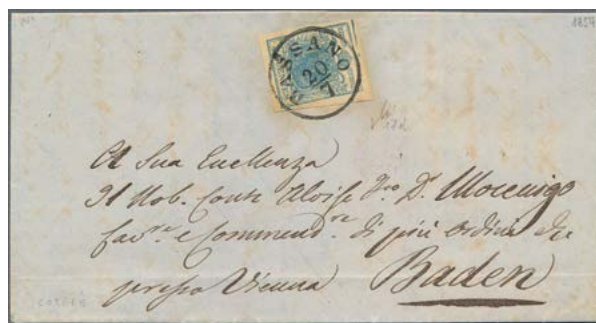 1854
BASSANO
20
7
A Sua Eccellenza
Il Nob. Conte Aloise D.r Mocenigo
Cav.re e Commend.re di più Ordini &c
presso Vienna Baden